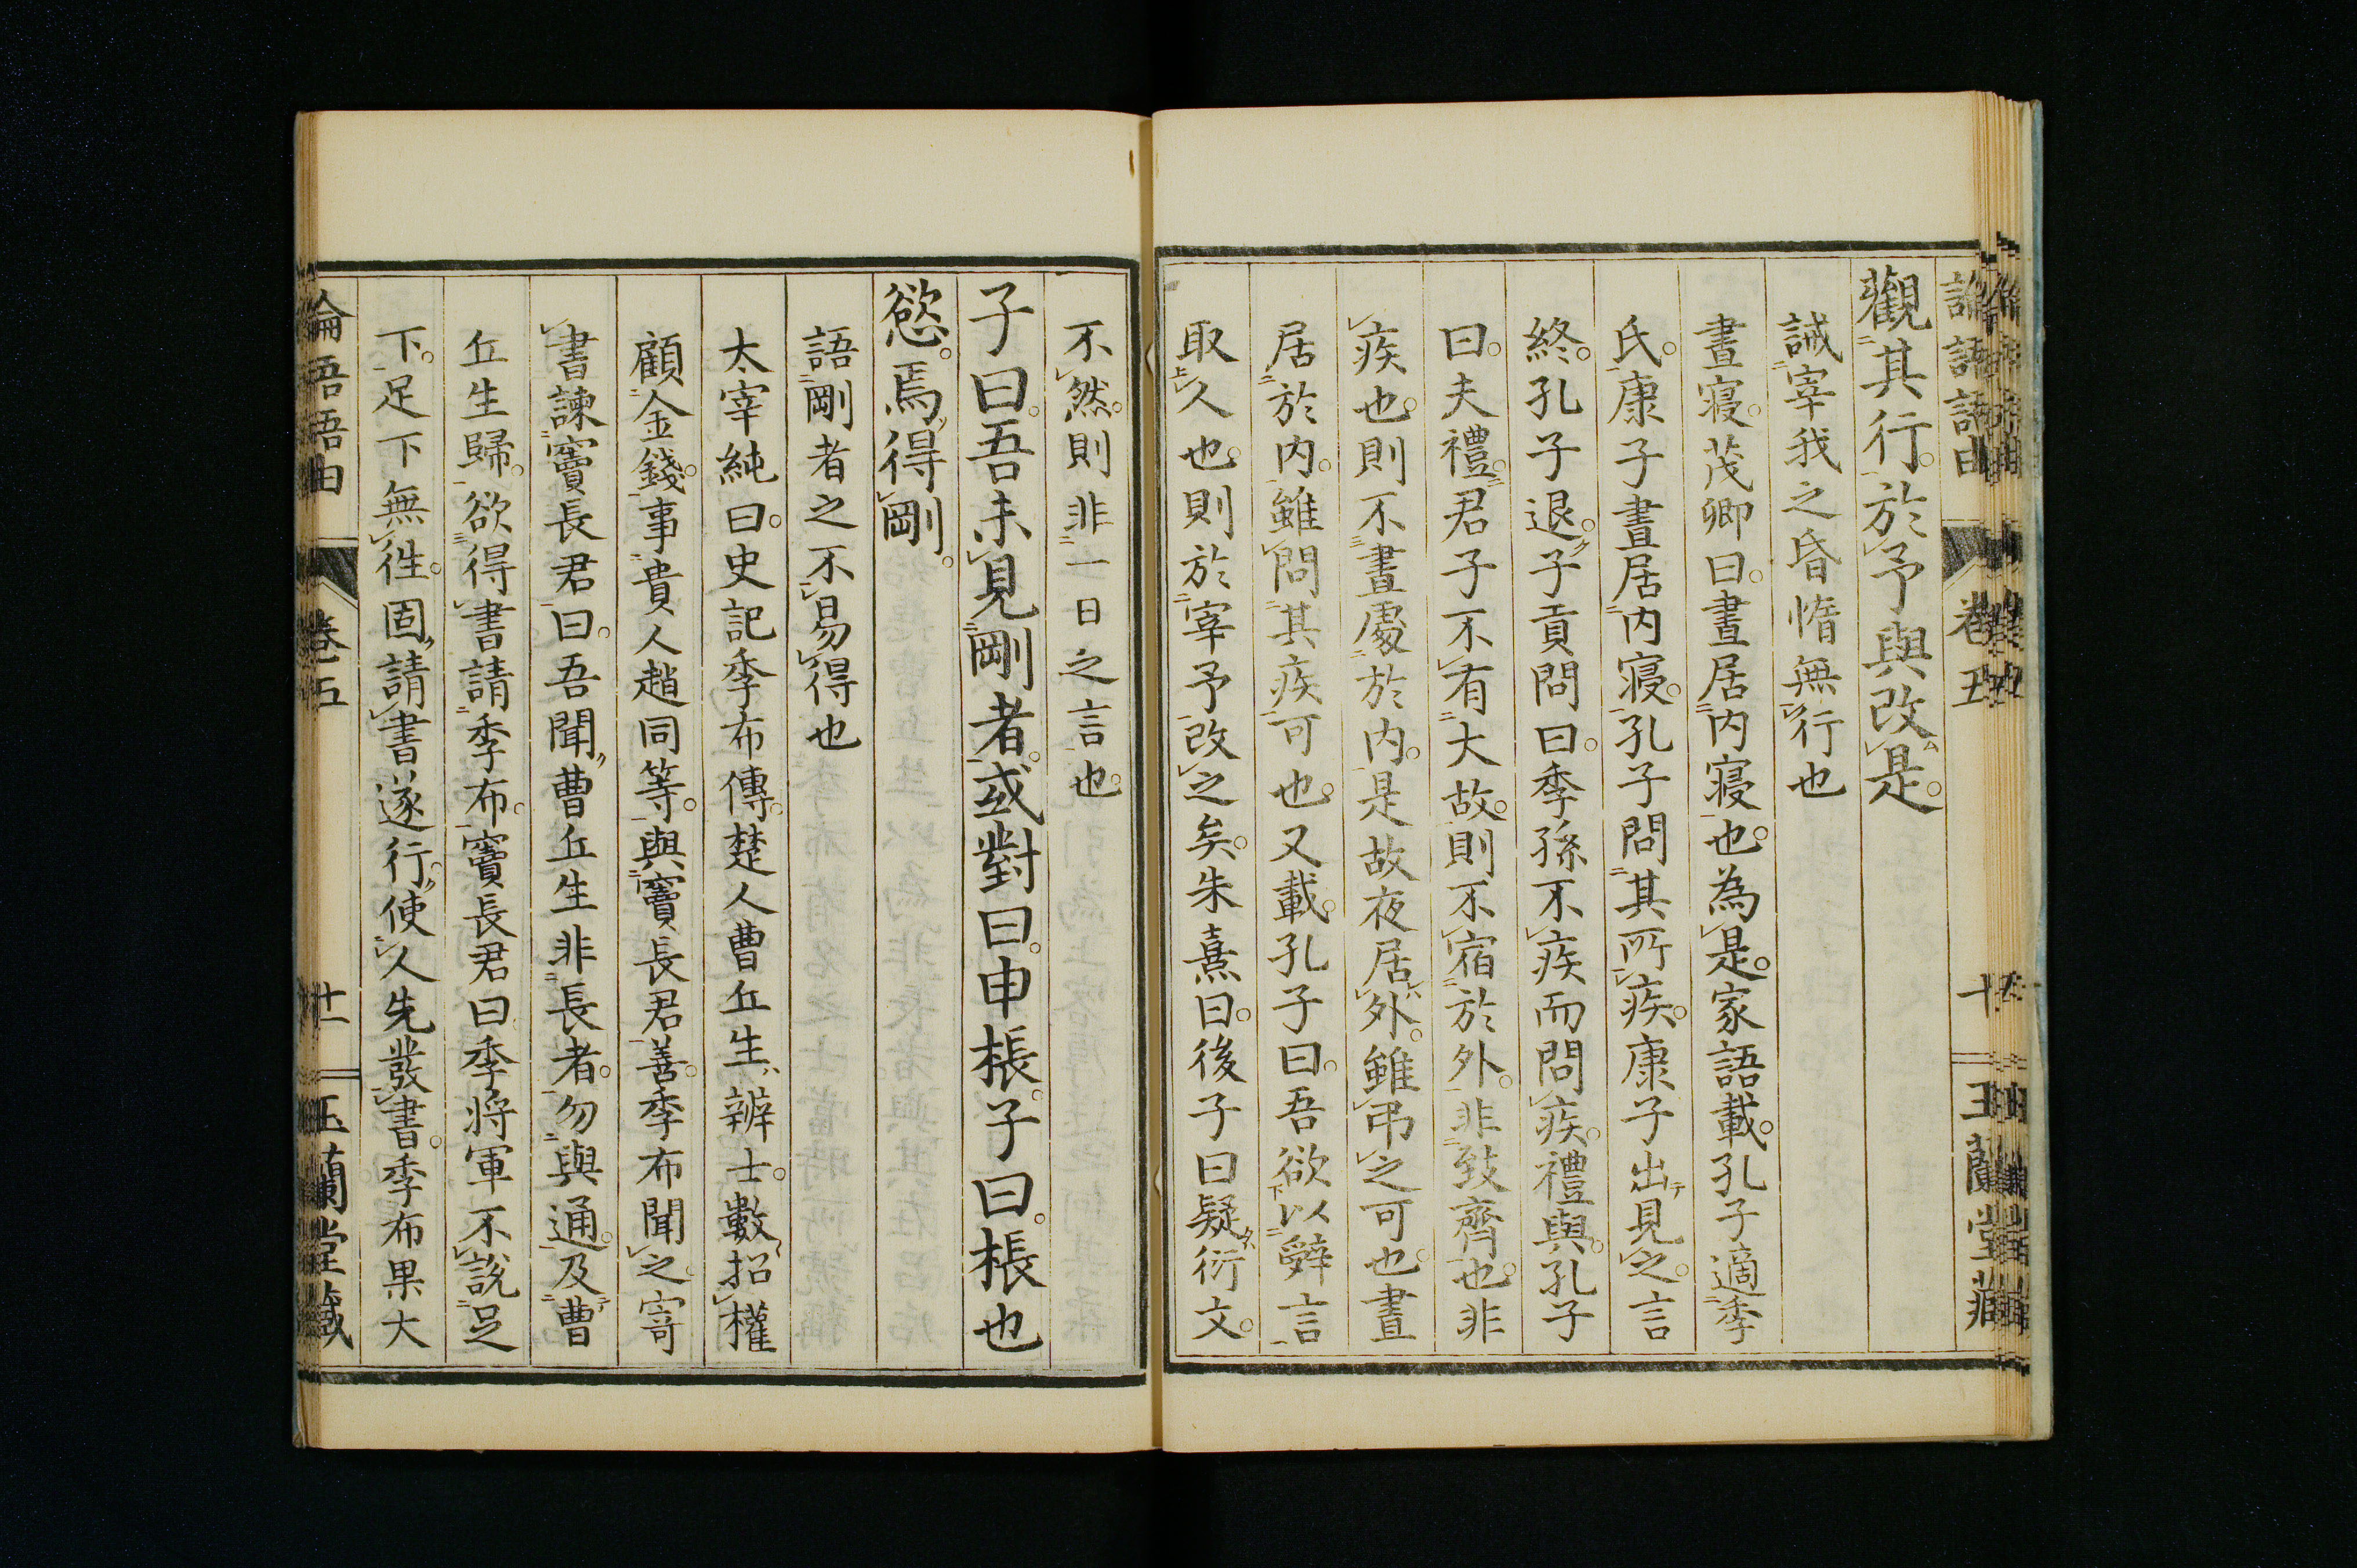 論語語由 卷五 十 玉蘭堂藏
觀其行。於予與改是。
誡宰我之昏惰無行也
晝寢。茂卿曰。晝居内寢也。為是。家語載。孔子適季
氏。康子晝居内寢。孔子問其所疾。康子出見之。言
終。孔子退。子貢問曰。季孫不疾而問疾。禮與。孔子
曰。夫禮。君子不有大故。則不宿於外。非致齊也。非
疾也。則不晝處於内。是故夜居外。雖弔之可也。晝
居於内。雖問其疾可也。又載。孔子曰。吾欲以辭言
取人也。則於宰予改之矣。朱熹曰。後子曰疑衍文。
不然。則非一日之言也。
子曰。吾未見剛者。或對曰。申棖。子曰。棖也
慾。焉得剛。
語剛者之不易得也
太宰純曰。史記季布傳。楚人曹丘生。辨士。數招權
顧金錢。事貴人趙同等。與竇長君善。季布聞之。寄
書諫竇長君曰。吾聞曹丘生非長者。勿與通。及曹
丘生歸。欲得書請季布。竇長君曰季將軍不說足
下。足下無徃。固請書遂行。使人先發書。季布果大
論語語由 卷五 十一 玉蘭堂藏